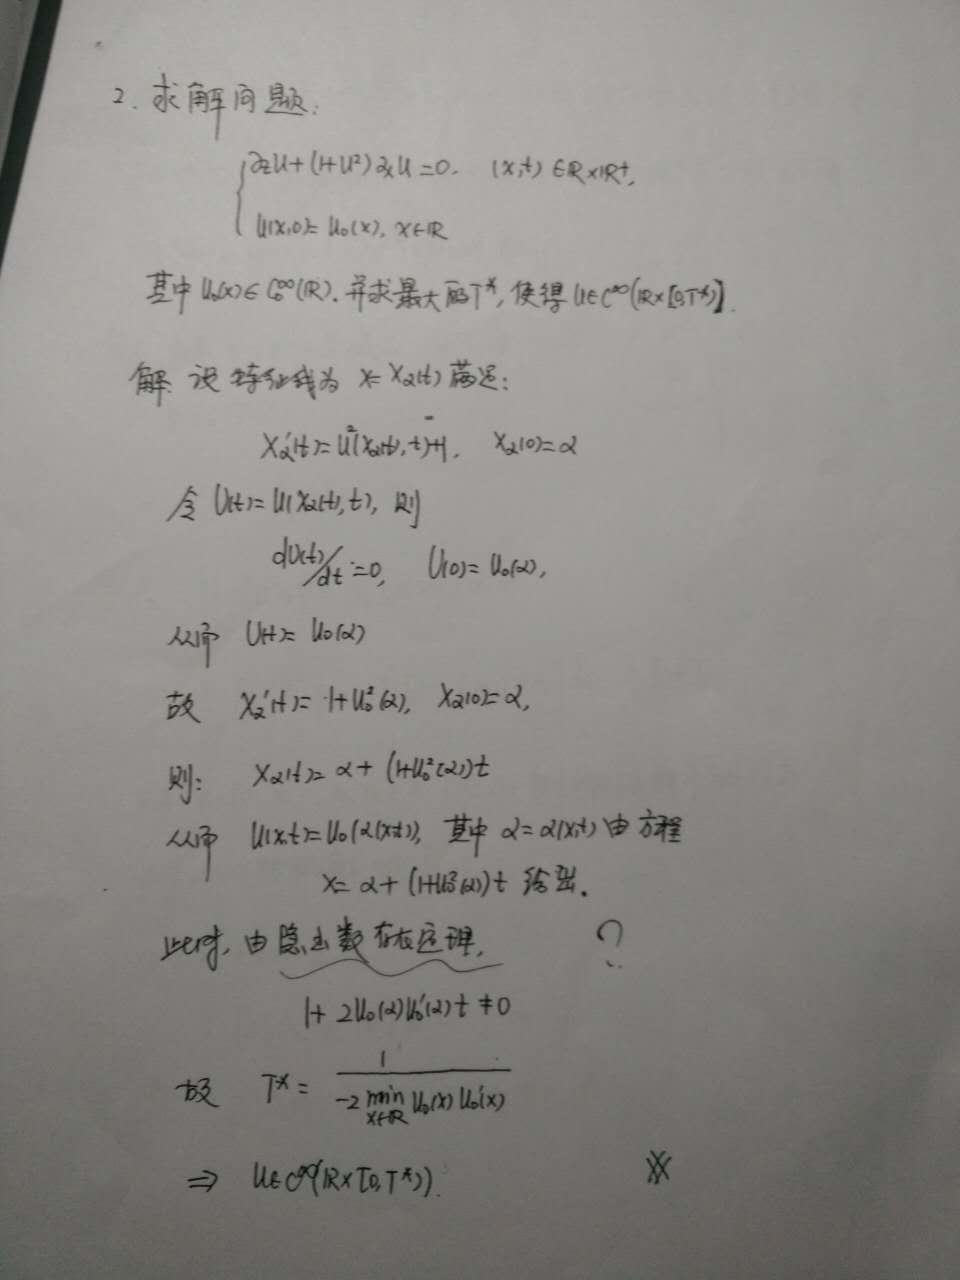 2. 求解问题:
∂tU+(1+U²)∂xU=0. (x,t)∈R×R⁺,
U(x,0)=U₀(x), x∈R
其中U₀(x)∈C₀^∞(R). 并求最大的T*, 使得U∈C^∞(R×[0,T*)].
解. 设特征线为 X=Xα(t) 满足:
Xα'(t)=U²(Xα(t),t)+1, Xα(0)=α
令 U(t)=U(Xα(t),t), 则
dU(t)/dt=0, U(0)=U₀(α),
从而 U(t)=U₀(α)
故 Xα'(t)=1+U₀²(α), Xα(0)=α,
则: Xα(t)=α+(1+U₀²(α))t
从而 U(x,t)=U₀(α(x,t)), 其中 α=α(x,t) 由方程
X=α+(1+U₀²(α))t 给出.
此时, 由隐函数存在定理, ?
1+2U₀(α)U₀'(α)t≠0
故 T*=1/(-2 min x∈R U₀(x)U₀'(x))
⇒ U∈C^∞(R×[0,T*)).